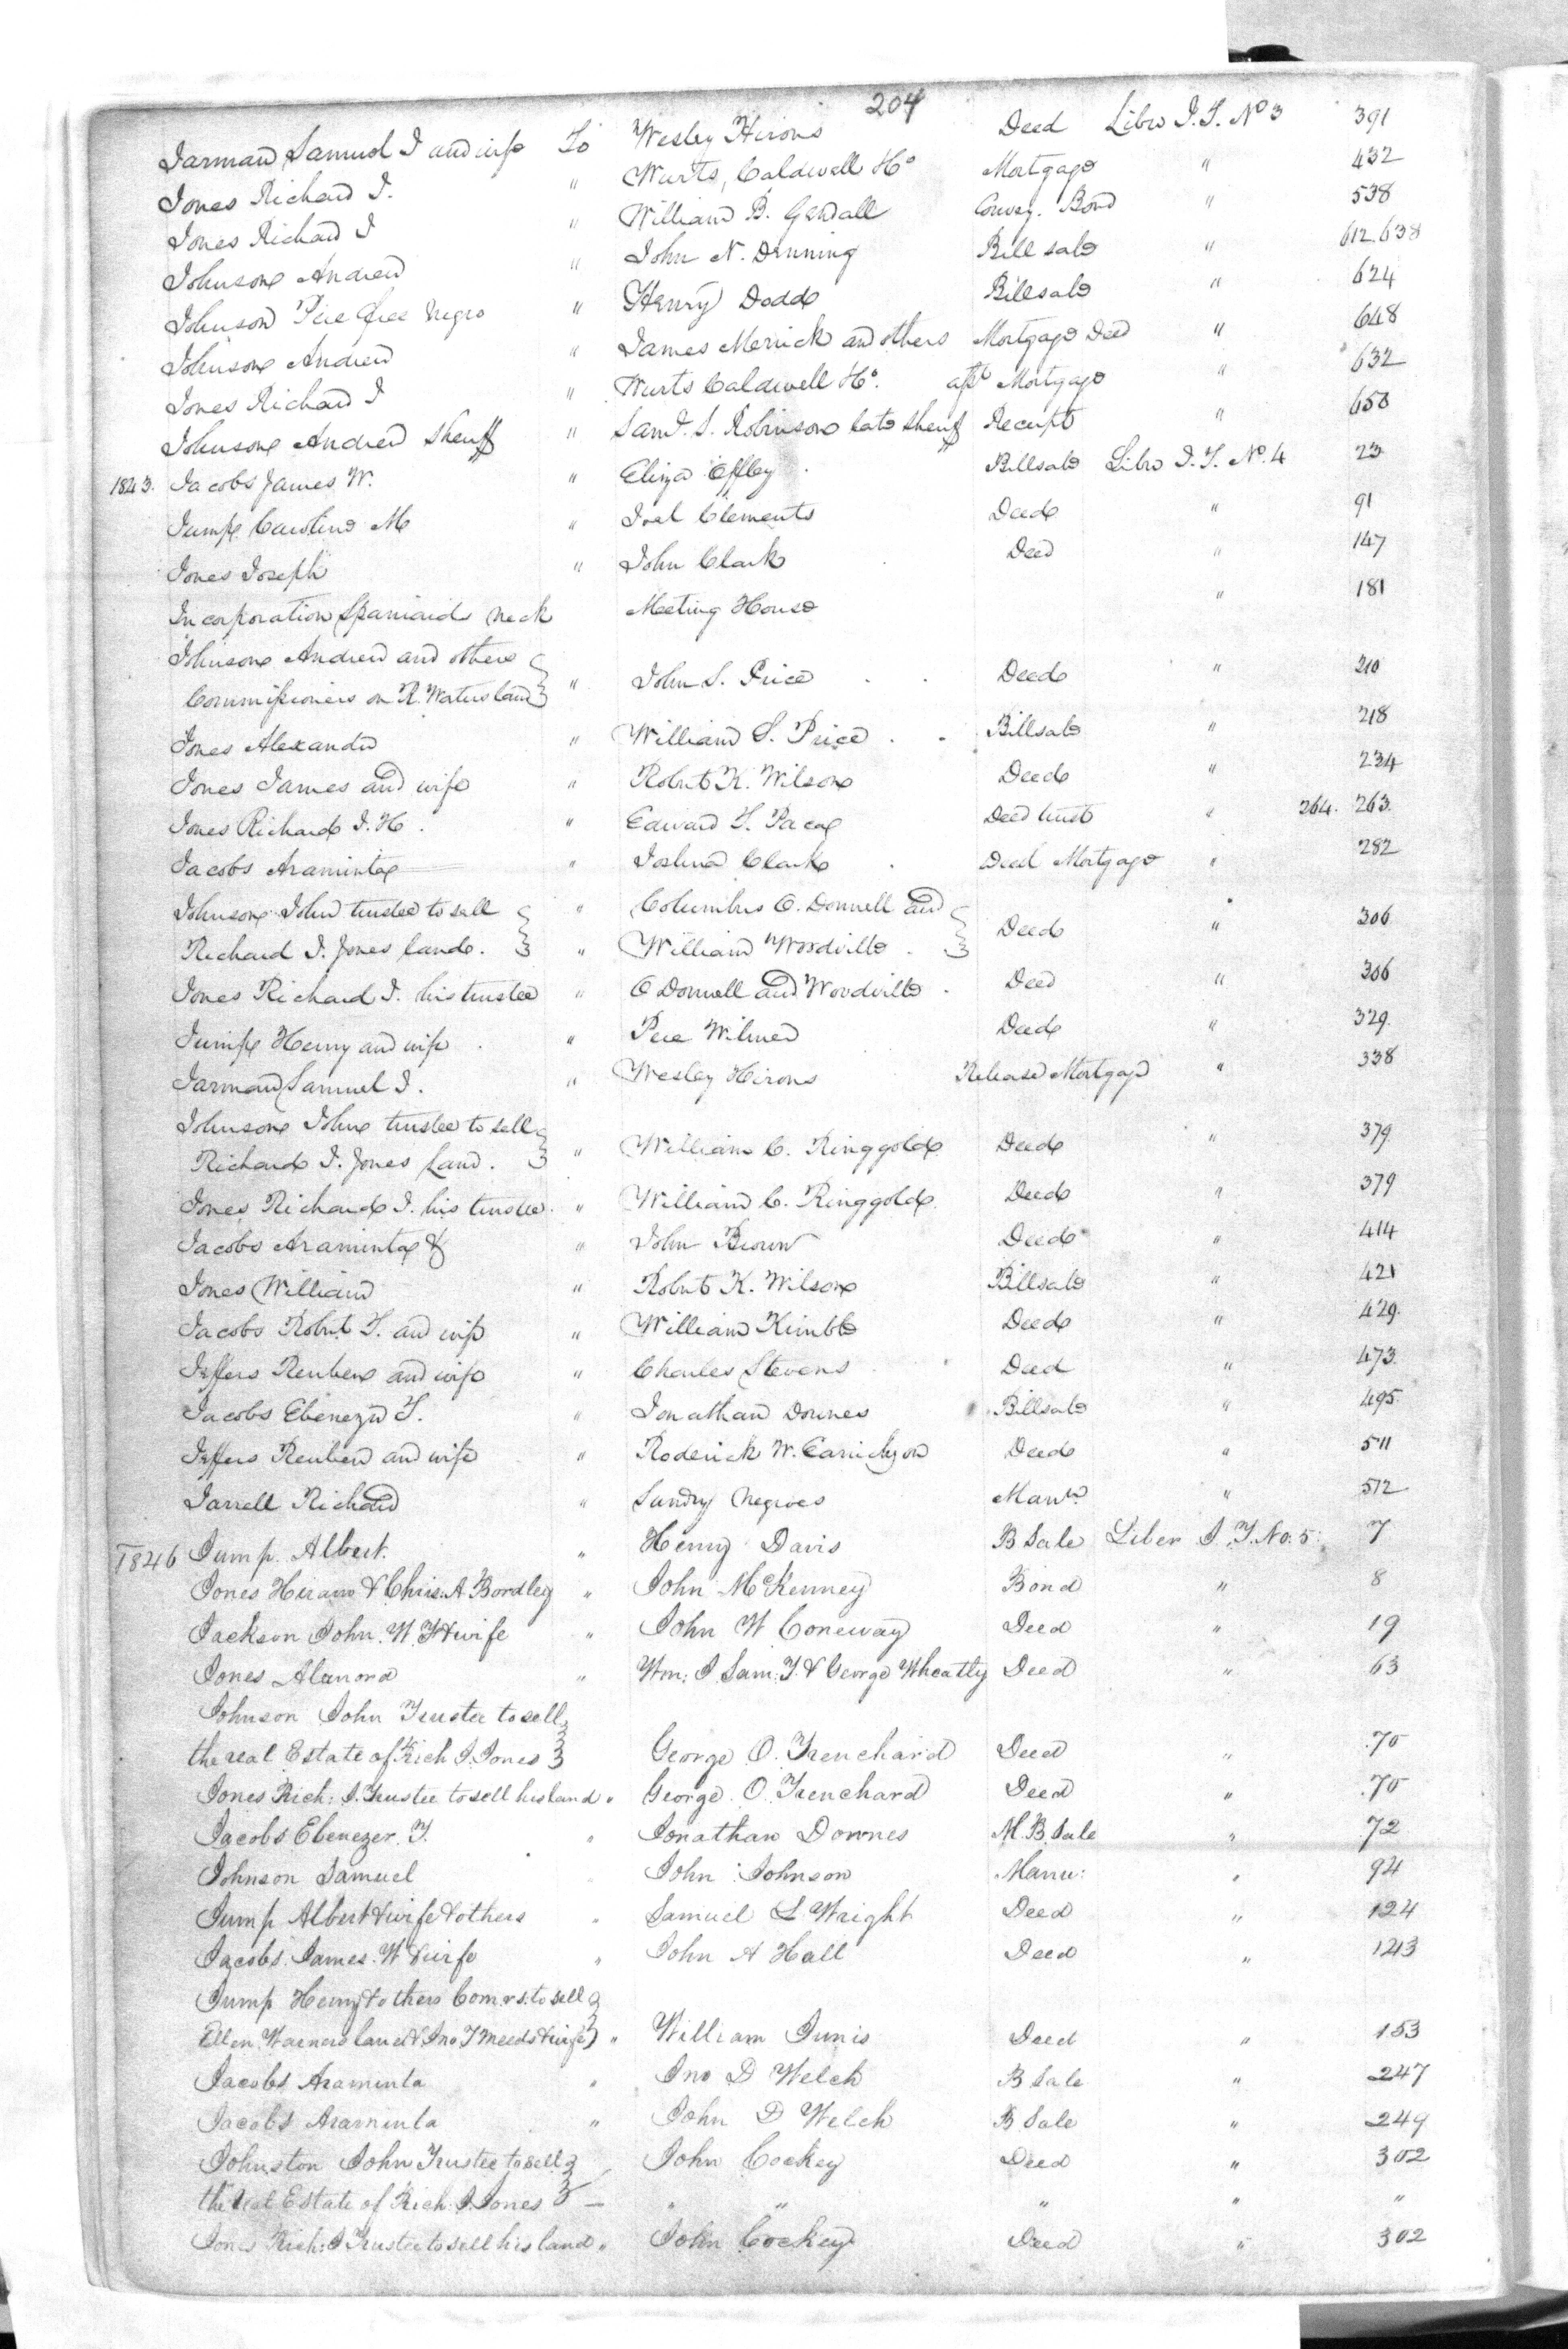 204
Jarman Samuel J and wife To Wesley Hirons Deed Libro J.T. No 3 391
Jones Richard J. " Wurts, Caldwell & Co Mortgage " 432
Jones Richard J " William B. Gendall Convey. Bond " 538
Johnson Andrew " John N. Denning Bill sale " 612.638
Johnson Pere free Negro " Henry Dodd Billsale " 624
Johnson Andrew " James Merrick and others Mortgage Deed " 648
Jones Richard J " Wurts Caldwell & Co. Mortgage " 632
Johnson Andrew Sheriff " Saml. S. Robinson late Sheriff Receipt " 650
1843. Jacobs James W. " Eliza Offley Billsale Libro J.T. No. 4 23
Jump Caroline M " Joel Clements Deed " 91
Jones Joseph " John Clark Deed " 147
Incorporation Spaniards Neck Meeting House " 181
Johnson Andrew and others
Commissioners on R. Waters land " John S. Price Deed " 210
Jones Alexander " William S. Price Billsale " 218
Jones James and wife " Robert K. Wilson Deed " 234
Jones Richard J. H. " Edward T. Paca Deed trust " 264. 263.
Jacobs Araminta " Joshua Clark Deed Mortgage " 282
Johnson John trustee to sell " Columbus O. Donnell and
Richard J. Jones land. " William Woodville Deed " 306
Jones Richard J. his trustee " O Donnell and Woodville Deed " 306
Jump Henry and wife " Pere Wilmer Deed " 329.
Jarman Samuel J. " Wesley Hirons Release Mortgage " 338
Johnson John trustee to sell
Richard J. Jones Land. " William C. Ringgold Deed " 379
Jones Richard J. his trustee " William C. Ringgold Deed " 379
Jacobs Araminta & " John Brown Deed " 414
Jones William " Robert K. Wilson Billsale " 421
Jacobs Robert T. and wife " William Kimble Deed " 429.
Jeffers Reuben and wife " Charles Stevens Deed " 473.
Jacobs Ebenezer T. " Jonathan Downes Billsale " 495.
Jeffers Reuben and wife " Roderick W. Earickson Deed " 511
Jarrell Richard " Sundry Negroes Manu. " 512
1846 Jump Albert. " Henry Davis B Sale Liber J.T. No. 5: 7
Jones Hiram & Chris. A. Bordley " John McKenney Bond " 8
Jackson John. W. T. & wife " John W Coneway Deed " 19
Jones Alanora " Wm: J. Sam: T. & George Wheatly Deed " 63
Johnson John Trustee to sell
the real Estate of Rich J. Jones George O. Trenchard Deed " 70
Jones Rich: J. Trustee to sell his land " George. O. Trenchard Deed " 70
Jacobs Ebenezer. T. " Jonathan Downes M. B. Sale " 72
Johnson Samuel John Johnson Manu: " 94
Jump Albert & wife & others " Samuel L. Wright Deed " 124
Jacobs. James. W & wife " John A Hall Deed " 143
Jump Henry & others Comrs. to sell
Ellen Warners land & Jno T Meeds & wife " William Junis Deed " 153
Jacobs Araminta " Jno D Welch B Sale " 247
Jacobs Araminta " John D Welch B Sale " 249
Johnston John Trustee to sell John Cockey Deed " 302
the real Estate of Rich. J. Jones — " " " " "
Jones Rich: J Trustee to sell his land " John Cockey Deed " 302